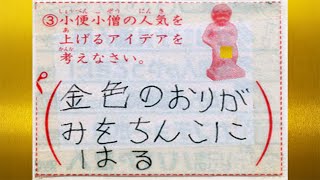 ③小便小僧の人気を
上げるアイデアを
考えなさい。
金色のおりが
みをちんこに
はる